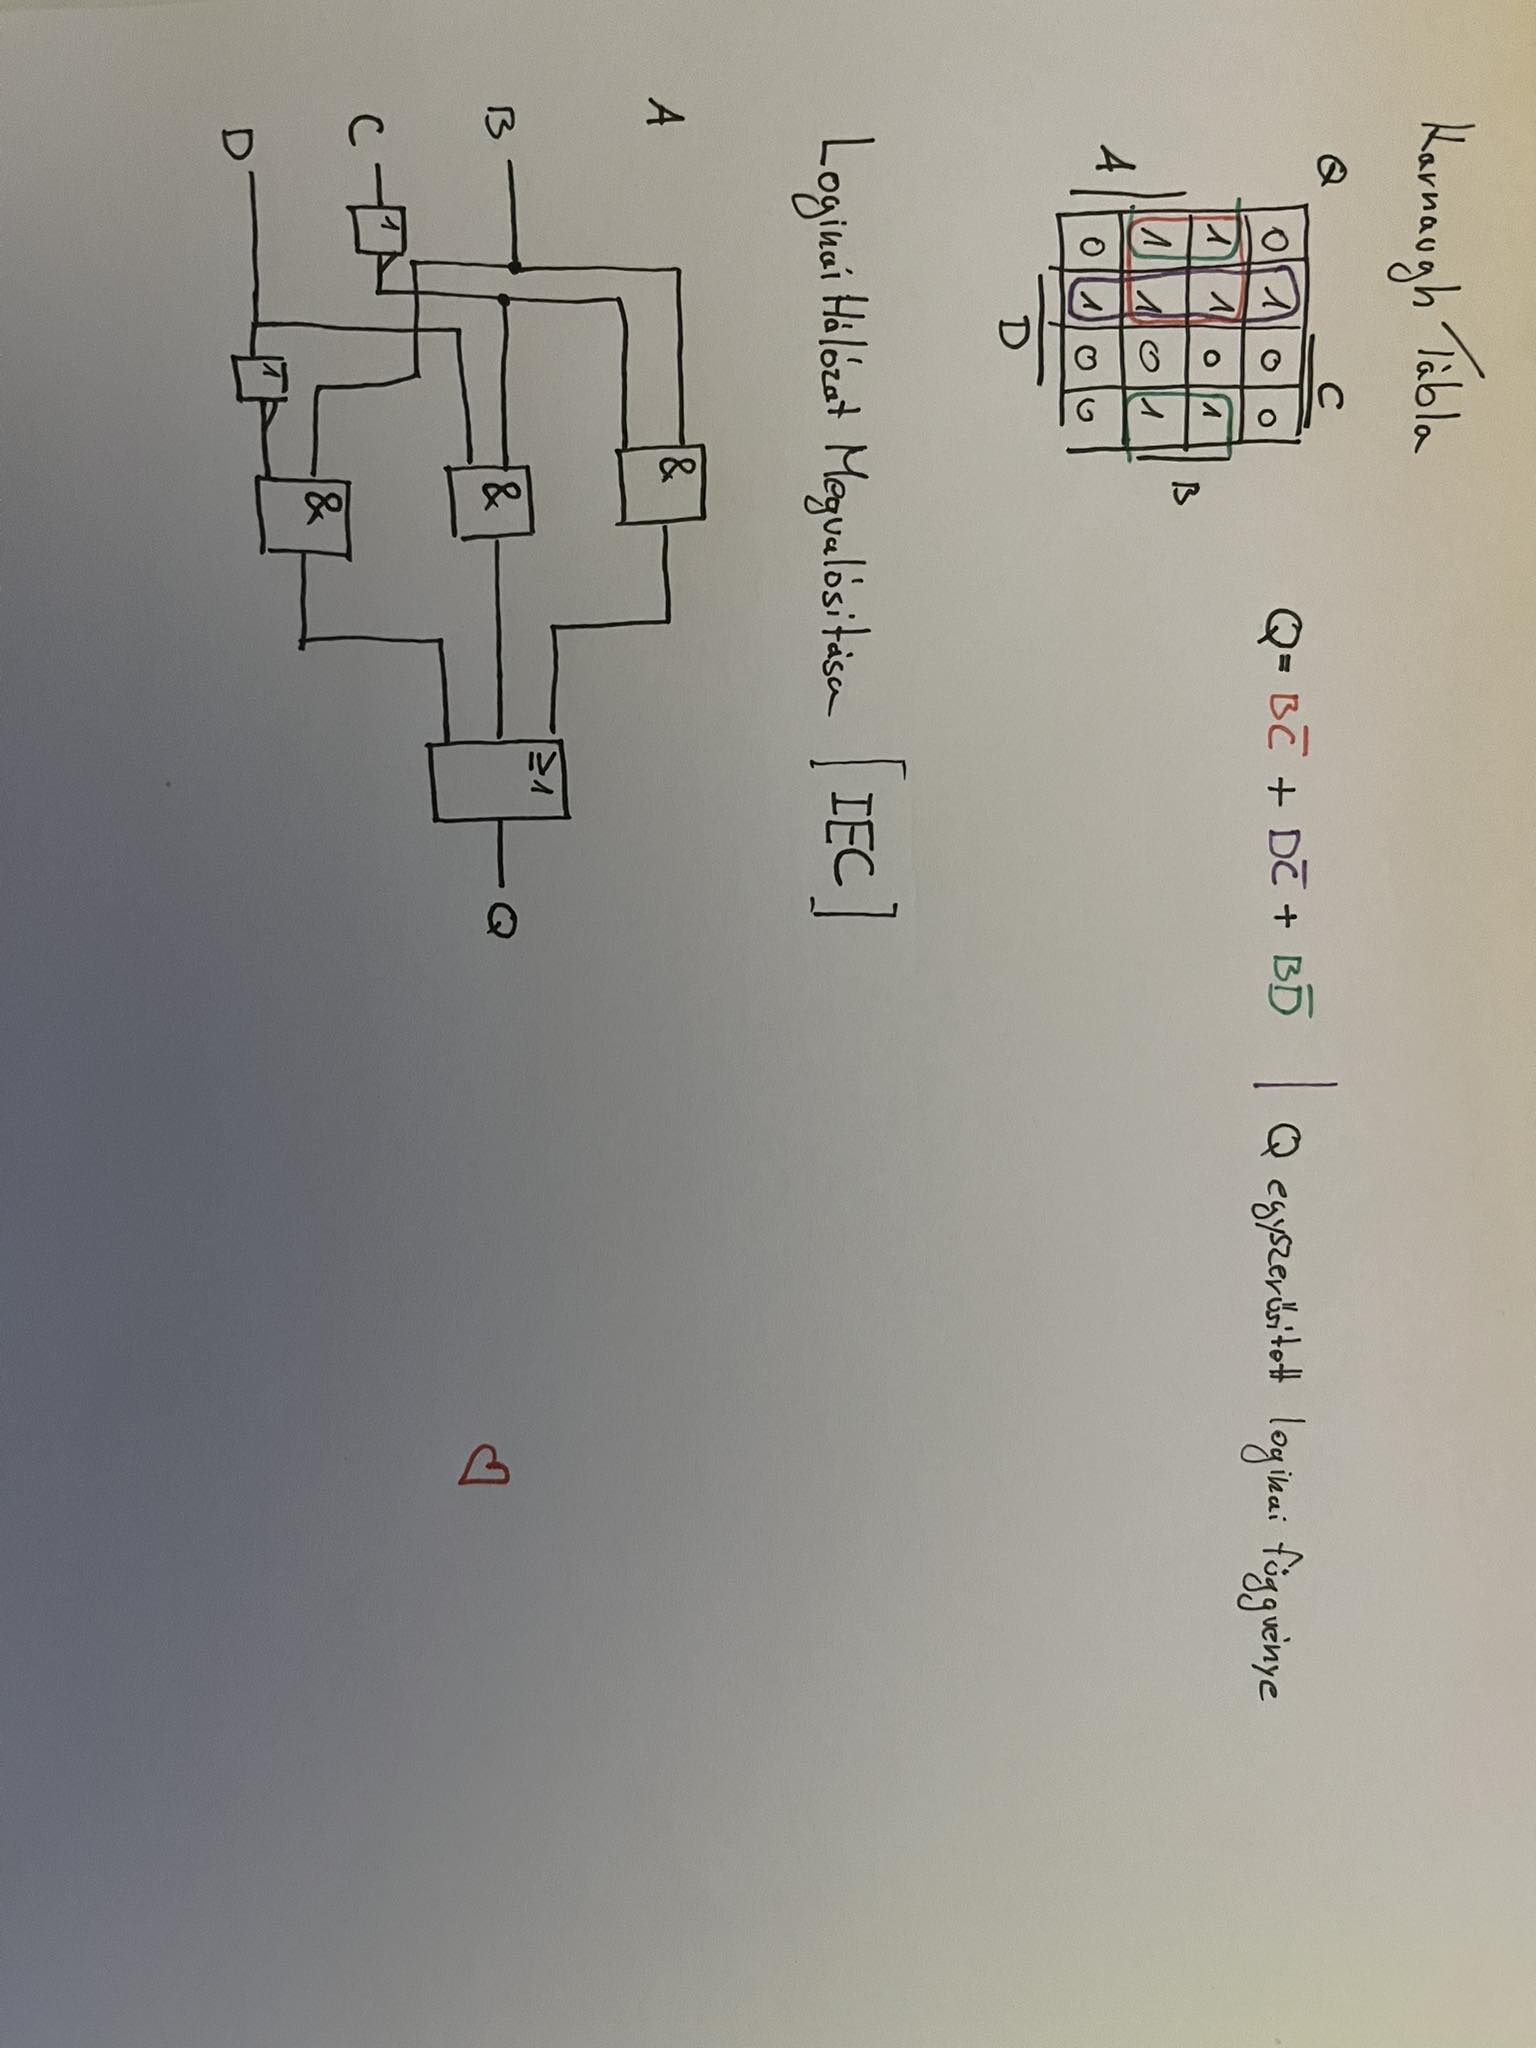 Karnaugh Tábla
Q C
0 0 0 0
1 1 0 1
1 1 0 1 B
A 0 1 0 0
D
Q= BC̅ + DC̅ + BD̅ | Q egyszerűsitett logikai függvénye
Logikai Hálózat Megvalósitása [IEC]
A
&
B
≥1
& Q
C 1
&
D 1